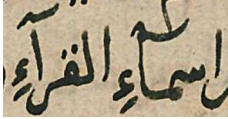 اسمآءِ القرآءِ